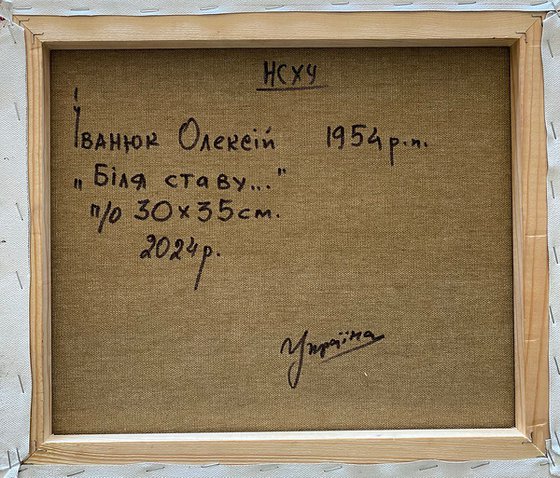 НСХУ
Іванюк Олексій 1954 р.н.
„Біля ставу..."
п/о 30х35см.
2024р.
Україна